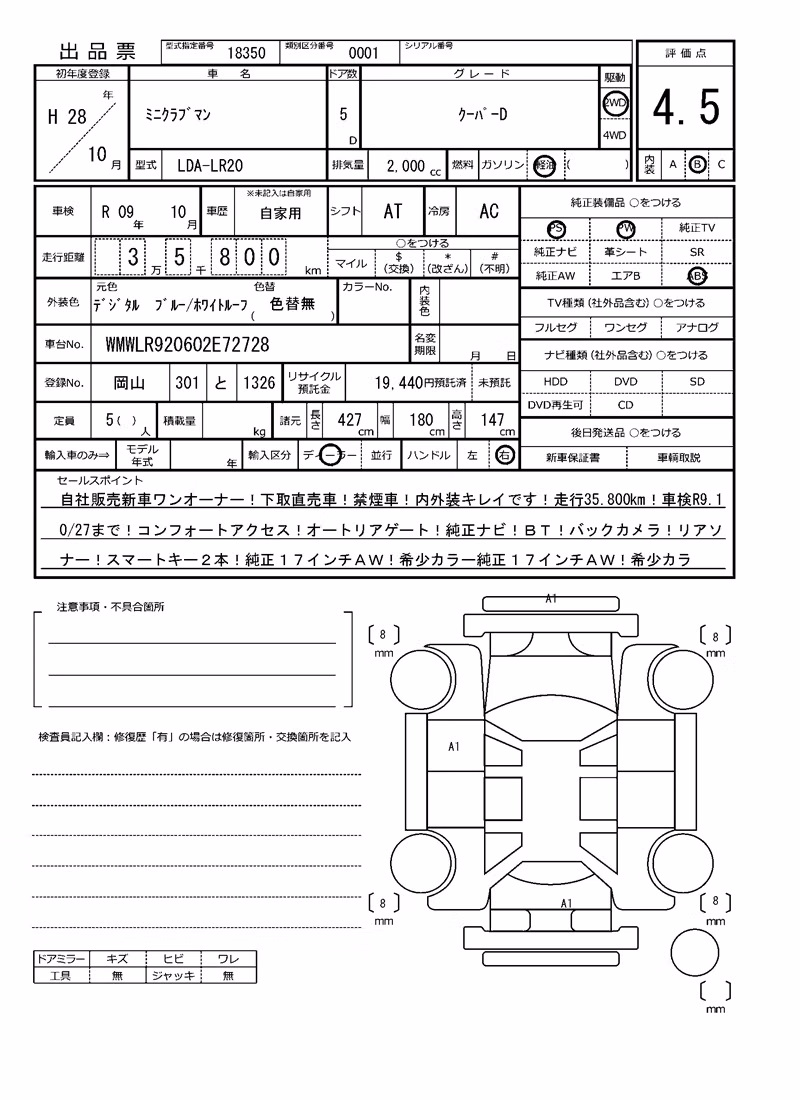 出品票 型式指定番号 18350 類別区分番号 0001 シリアル番号
評価点
初年度登録 車名 ドア数 グレード 駆動
H 28 年 10 月 ﾐﾆｸﾗﾌﾞﾏﾝ 5 D ｸｰﾊﾟｰD 2WD 4WD
4.5
型式 LDA-LR20 排気量 2,000 cc 燃料 ガソリン 軽油 ( )
内装 A B C
車検 R 09 年 10 月 車歴 ※未記入は自家用 自家用 シフト AT 冷房 AC
純正装備品 ○をつける
PS PW 純正TV
純正ナビ 革シート SR
純正AW エアB ABS
走行距離 3 万 5 千 8 0 0 km
○をつける
マイル $ (交換) * (改ざん) # (不明)
外装色 元色 色替 ﾃﾞｼﾞﾀﾙ ﾌﾞﾙｰ/ﾎﾜｲﾄﾙｰﾌ ( 色替無 ) カラーNo. 内装色
TV種類(社外品含む) ○をつける
フルセグ ワンセグ アナログ
車台No. WMWLR920602E72728 名変期限 月 日
ナビ種類(社外品含む) ○をつける
HDD DVD SD
DVD再生可 CD
登録No. 岡山 301 と 1326 リサイクル預託金 19,440 円預託済 未預託
定員 5 ( ) 人 積載量 kg 諸元 長さ 427 cm 幅 180 cm 高さ 147 cm
後日発送品 ○をつける
新車保証書 車輌取説
輸入車のみ⇒ モデル年式 年 輸入区分 ディーラー 並行 ハンドル 左 右
セールスポイント
自社販売新車ワンオーナー！下取直売車！禁煙車！内外装キレイです！走行35.800km！車検R9.1
0/27まで！コンフォートアクセス！オートリアゲート！純正ナビ！ＢＴ！バックカメラ！リアソ
ナー！スマートキー２本！純正１７インチＡＷ！希少カラー純正１７インチＡＷ！希少カラ
注意事項・不具合箇所
A1
8 mm
8 mm
検査員記入欄：修復歴「有」の場合は修復箇所・交換箇所を記入
A1
8 mm
A1
8 mm
ドアミラー キズ ヒビ ワレ
工具 無 ジャッキ 無
mm